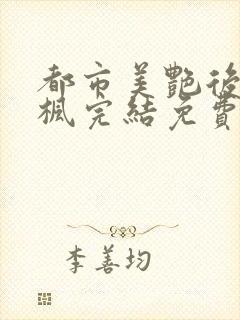 都市美艷後
楓完結免費
李善均